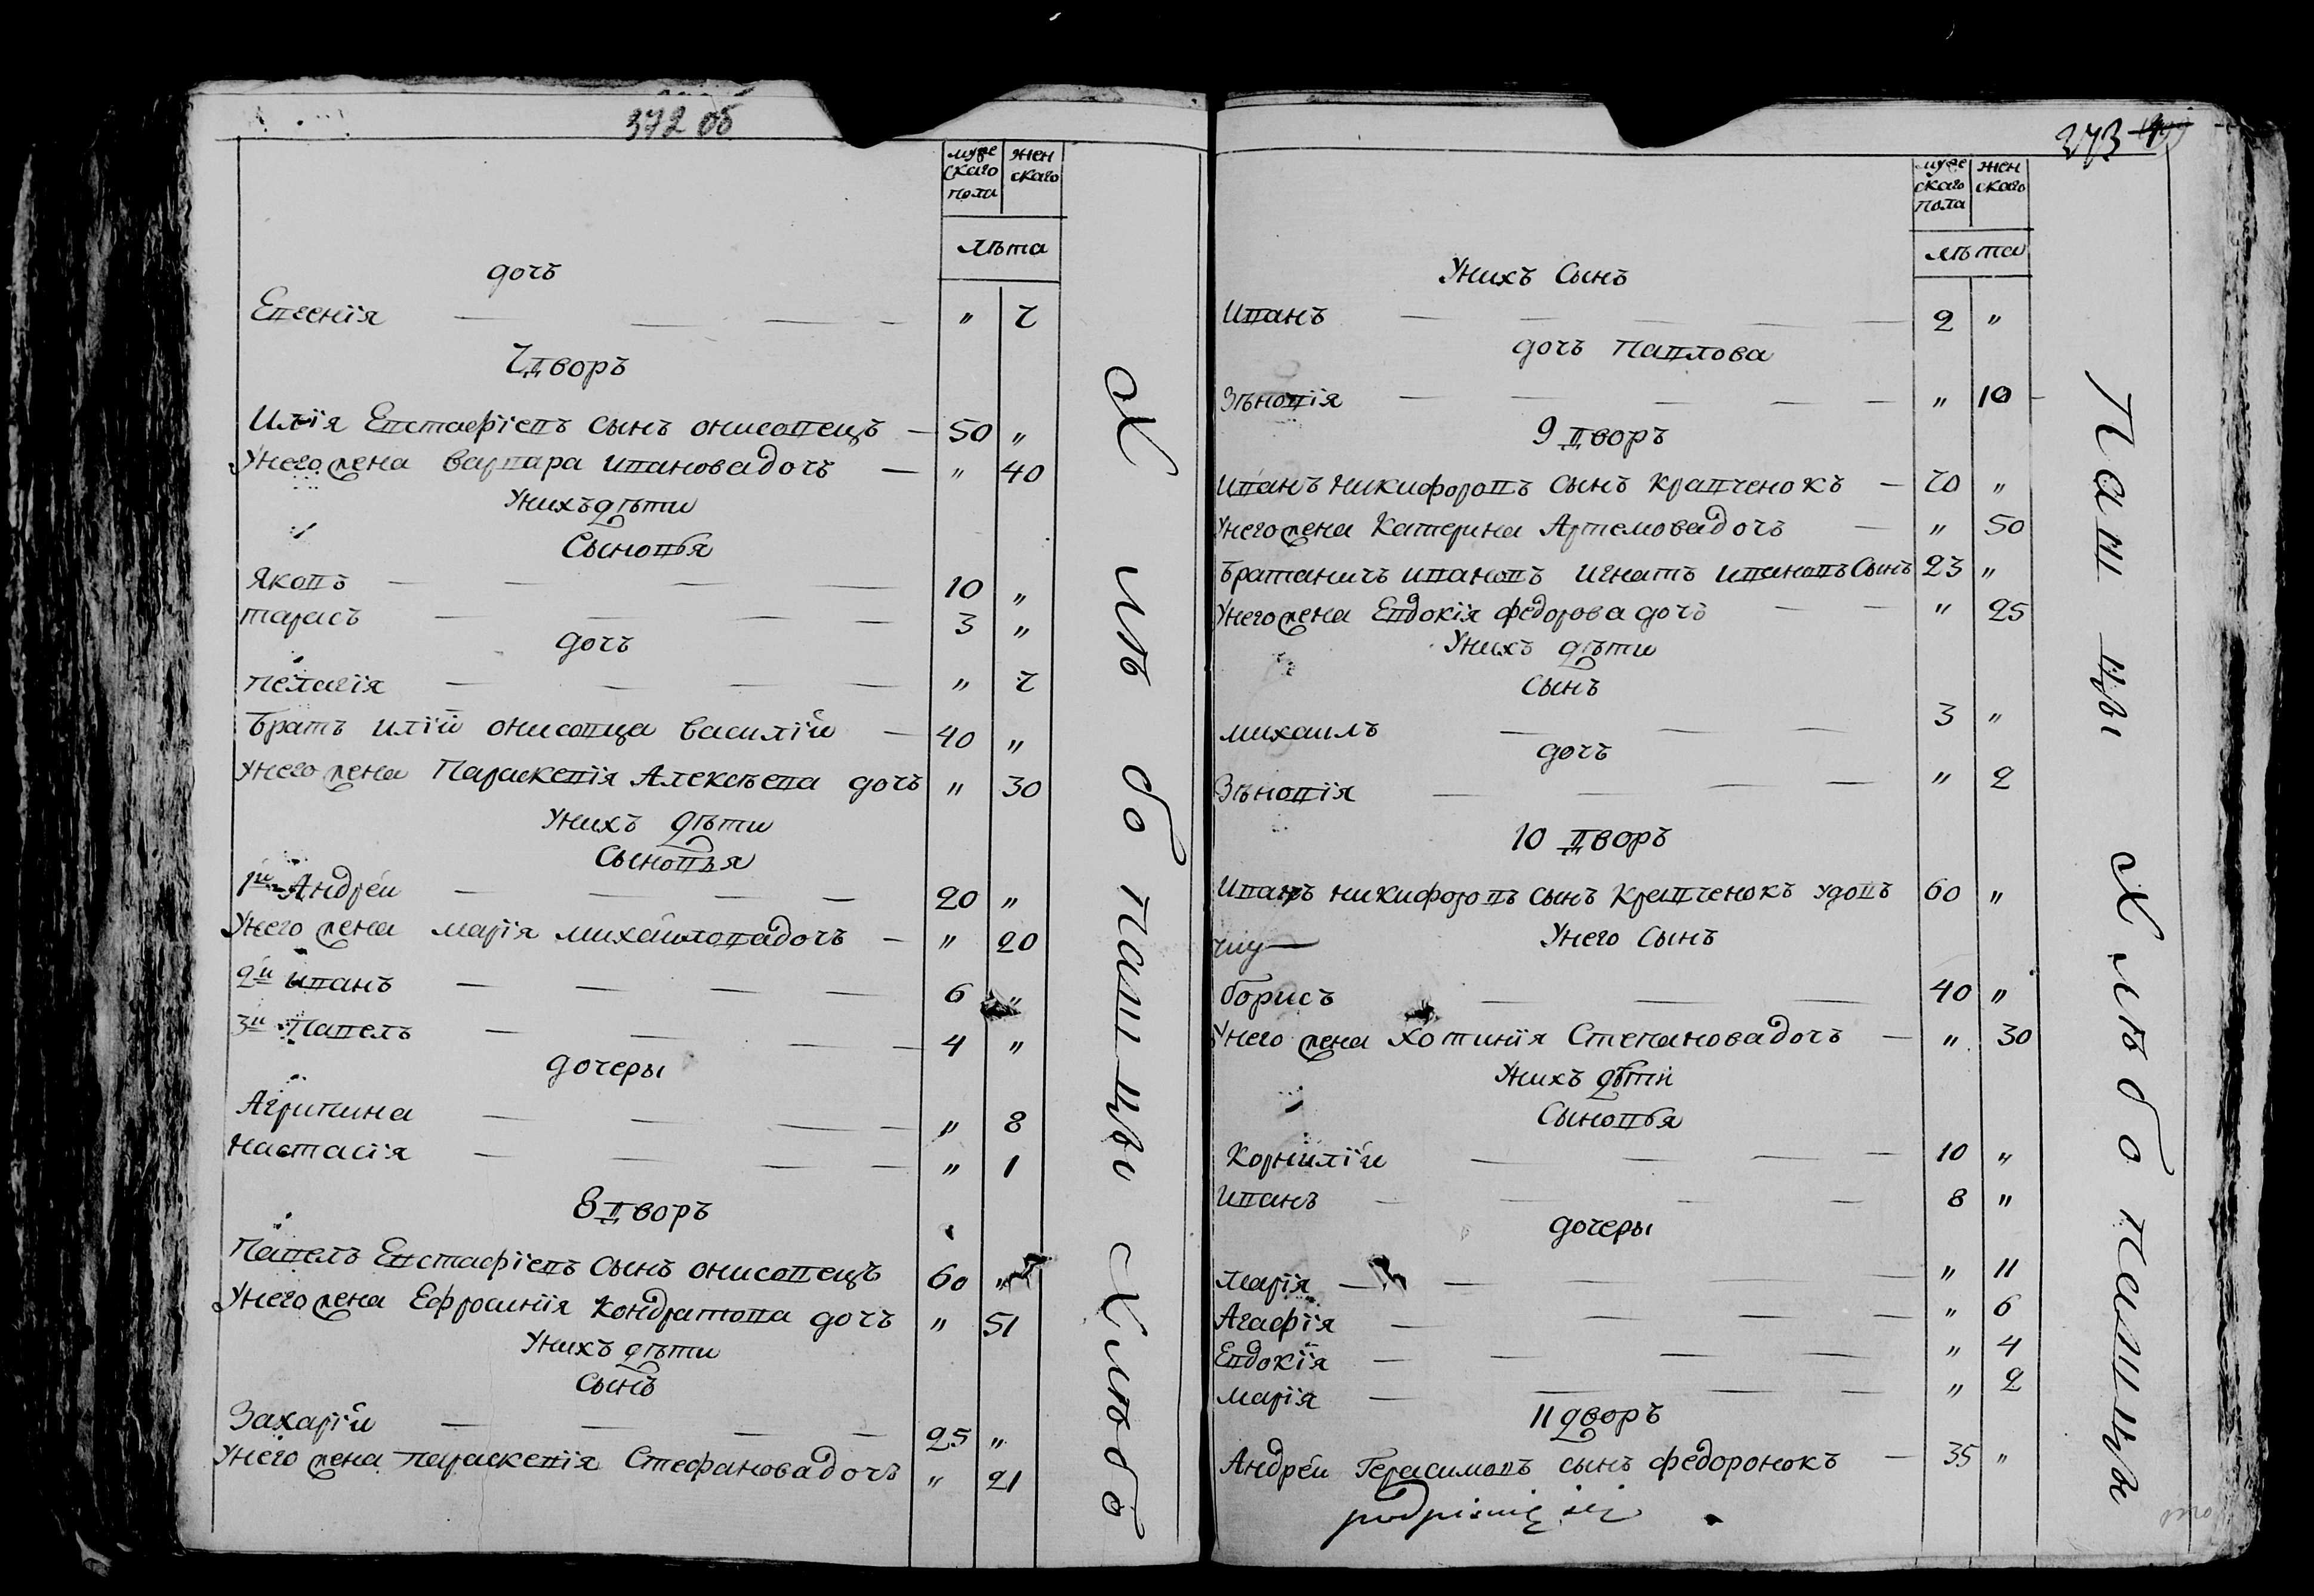 372 об
муже
скаго
пола
жен
скаго
лѣта
дочъ
Евгенія — — — — " 7
7 дворъ
Илія Евстафіевъ сынъ онисовецъ — 50 "
Унего жена варвара ивановадочъ — " 40
Унихъ дѣти
Сыновья
Яковъ — — — — 10 "
тарасъ — — — — 3 "
дочъ
пелагія — — — — " 7
братъ иліи онисовца василій — 40 "
Унего жена Параскевія Алексѣева дочъ " 30
Унихъ дѣти
Сыновья
1й Андрей — — — — 20 "
Унего жена марія михайловадочъ — " 20
2й иванъ — — — — 6 "
3й Павелъ — — — — 4 "
дочеры
Агрипина — — — — " 8
Настасія — — — — " 1
8 дворъ
Павелъ Евстафіевъ сынъ онисовецъ 60 "
Унего жена Ефросинія кондратова дочъ " 51
Унихъ дѣти
сынъ
Захарій — — — — 25 "
Унего жена параскевія Стефановадочъ " 21
Хлѣбопашцы Хлѣбо
273
муже
скаго
пола
жен
скаго
лѣта
Унихъ Сынъ
Иванъ — — — — — 2 "
дочъ Павлова
Зѣновія — — — — — " 10
9 дворъ
Иванъ Никифоровъ сынъ кравченокъ — 70 "
Унего жена Катерина Артемовадочъ — " 50
братаничъ ивановъ игнатъ ивановъ Сынъ 23 "
Унего жена Евдокія федорова дочъ — — " 25
Унихъ дѣти
Сынъ
михаилъ — — — 3 "
дочъ
Зѣновія — — — — " 2
10 дворъ
Иванъ никифоровъ сынъ Кравченокъ удовъ 60 "
Унего Сынъ
борисъ — — — 40 "
Унего жена Хотинія Степановадочъ — " 30
Унихъ дѣти
Сыновья
Корнилій — — — — 10 "
Иванъ — — — — 8 "
дочеры
марія — — — — " 11
Агафія — — — — " 6
Евдокія — — — — " 4
марія — — — — " 2
11 дворъ
Андрей Герасимовъ сынъ федоронокъ — 35 "
Пашцы Хлѣбопашцы